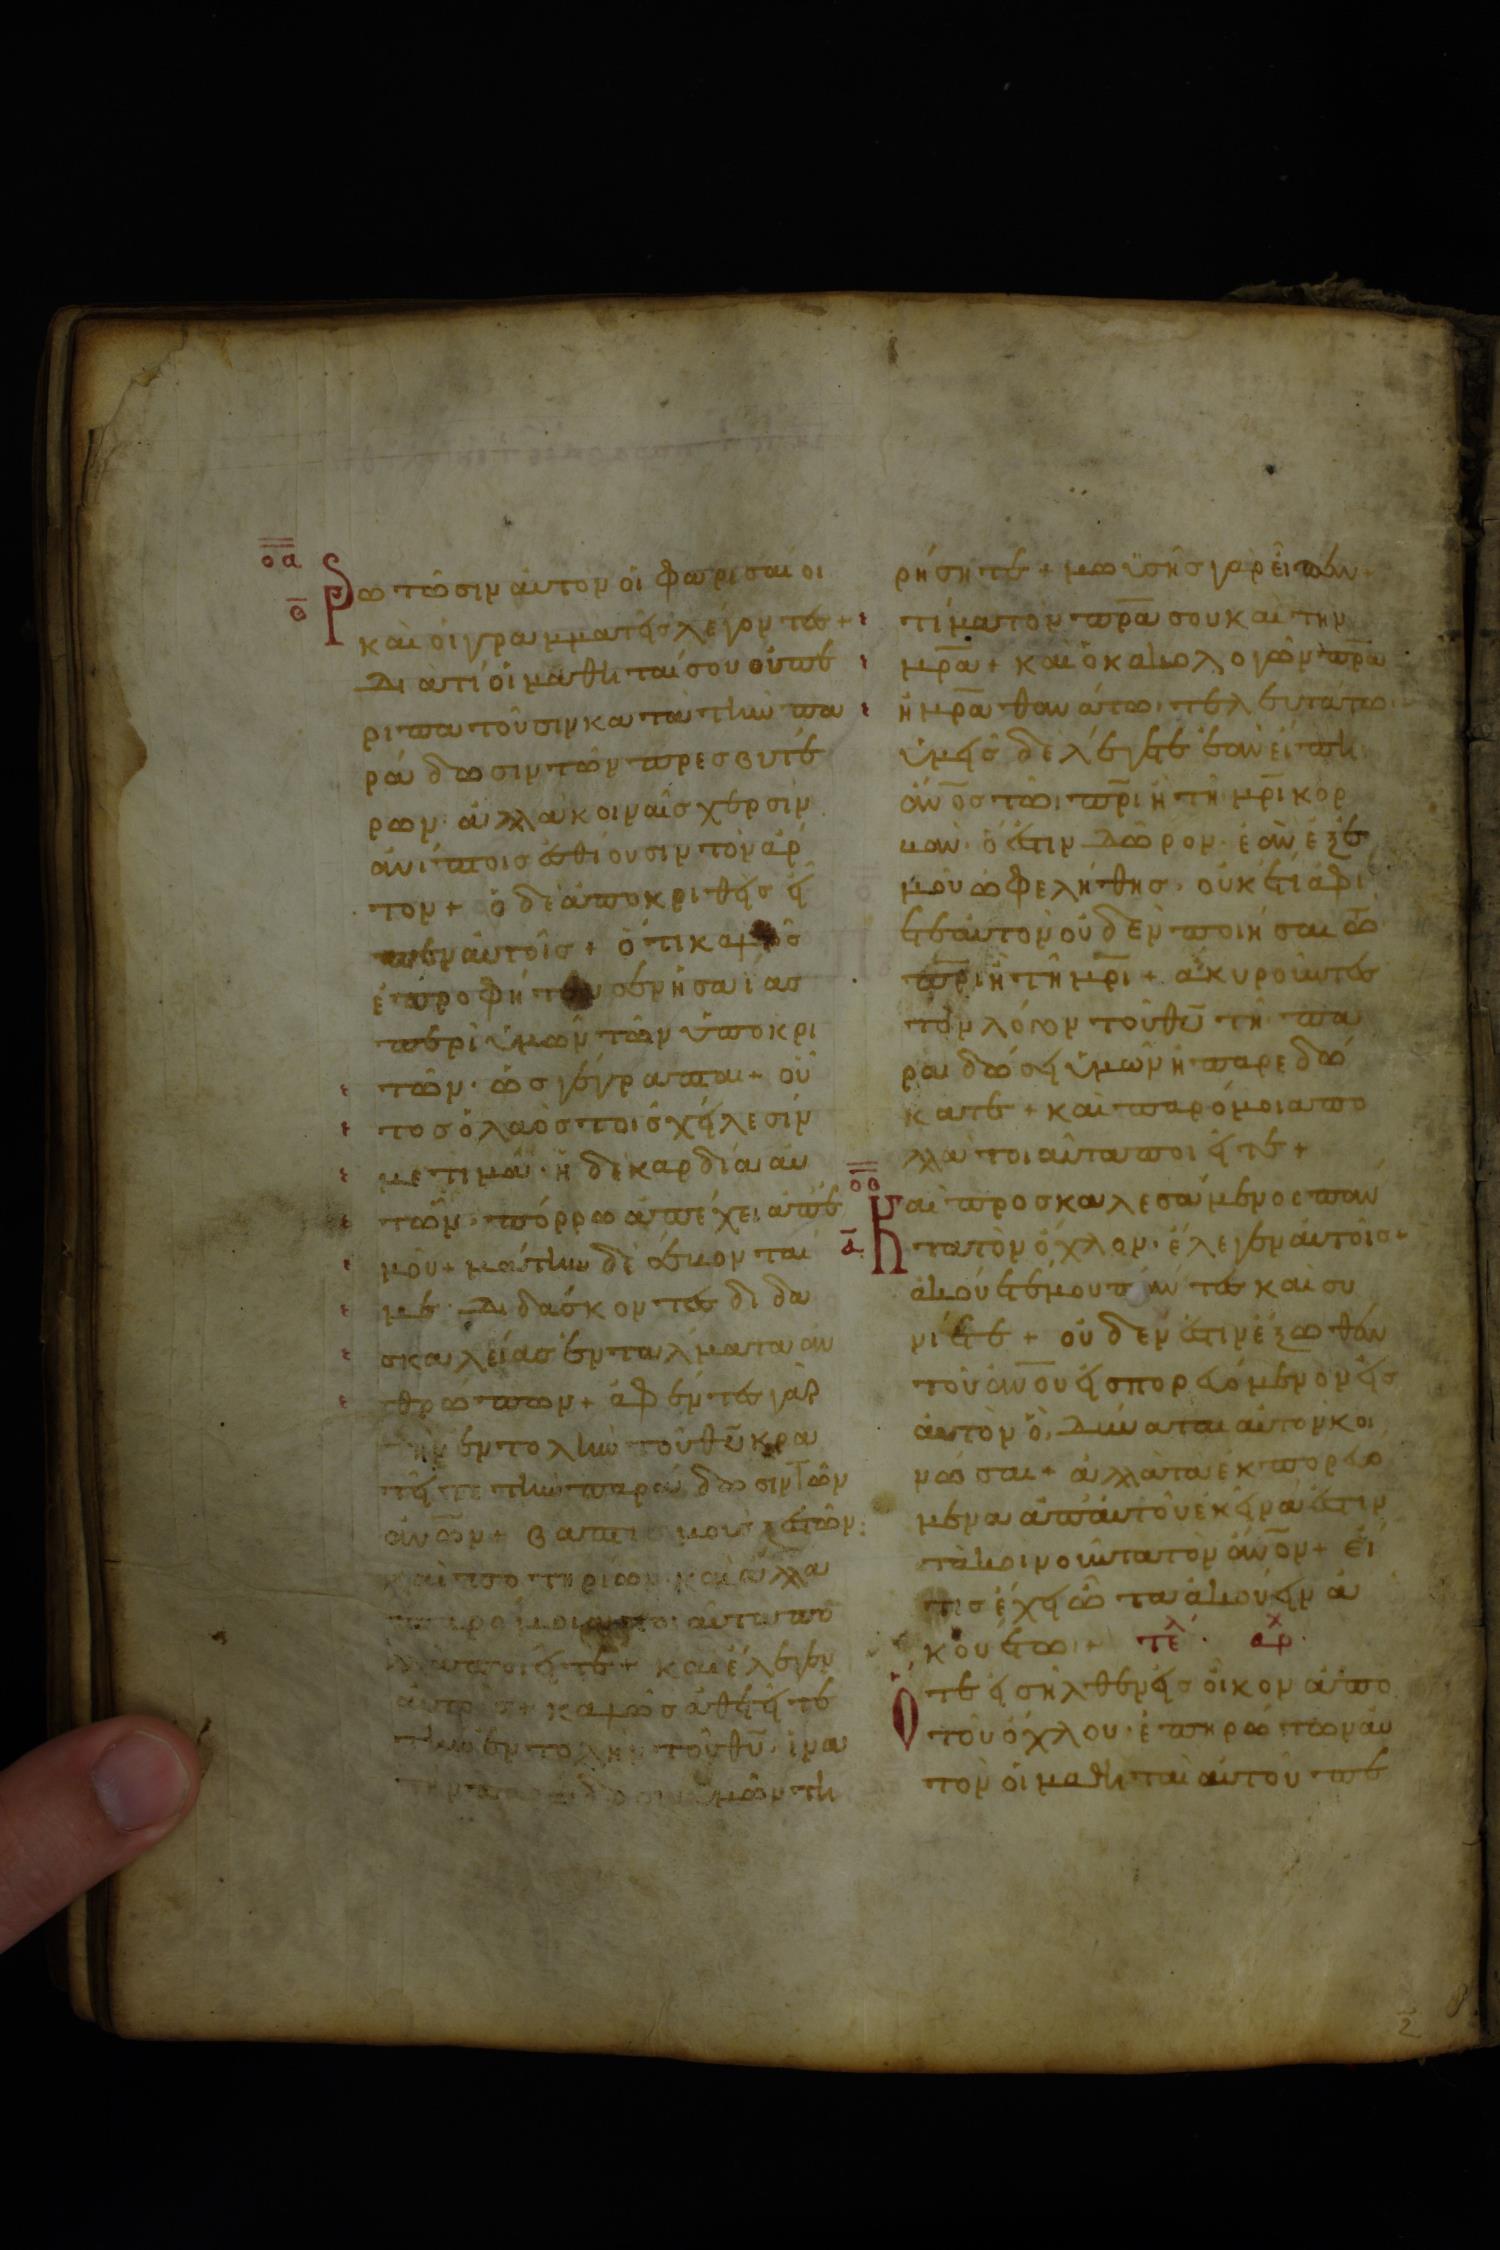 οα
β
ρωτῶσιν αὐτὸν οἱ φαρισαίοι
καὶ οἱ γραμματεῖς λέγοντες +
Διατί οἱ μαθηταί σου οὐ πε
ριπατοῦσιν κατὰ τὴν πα
ράδωσιν τῶν πρεσβυτέ
ρων· ἀλλὰ κοιναῖς χερσὶν
ἀνίπτοις ἐσθίουσιν τὸν ἄρ
τον + ὁ δὲ ἀποκριθεὶς εἶ
πεν αὐτοῖς + ὅτι καλῶς
ἐπροφήτευσεν ἡσαΐας
περὶ ὑμῶν τῶν ὑποκρι
τῶν· ὡς γέγραπται + οὗ
τος ὁ λαὸς τοῖς χείλεσίν
με τιμᾶ· ἡ δὲ καρδία αυ
τῶν· πόρρω ἀπέχει ἀπ' ἐ
μοῦ + μάτην δὲ σέβονταί
με· Διδάσκοντες διδα
σκαλείας ἐντάλματα ἀν
θρώπων + ἀφέντες γὰρ
τὴν ἐντολὴν τοῦ θῦ κρα
τεῖτε τὴν παράδωσιν τῶν
ἀνων + βαπτισμοὺς ξεστῶν·
καὶ ποτηρίων· καὶ ἄλλα
παρόμοια τοιαῦτα πο
λλὰ ποιεῖτε + καὶ ἔλεγεν
αὐτοῖς + καλῶς ἀθετεῖτε
τὴν ἐντολὴν τοῦ θῦ· ἵνα
τὴν παράδοσιν ὑμῶν τη
ρήσητε + μωϋσῆς γὰρ εἶπεν +
τίμα τὸν πρα σου καὶ την
μρα + καὶ ὁ κακολογῶν πρα
ἢ μρα θανάτω· τελευτάτω·
ὑμεῖς δὲ λέγετε ἐὰν εἴπη
ἀνος τῶι πρι ἢ τῆ μρι κορ
βάν· ὅ ἐστιν Δῶρον· ἐὰν ἐξ ἐ
μοῦ ὠφεληθῆς· οὐκέτι ἀφί
ετε αὐτὸν οὐδὲν ποιῆσαι τῶ
πρι ἢ τῆ μρι + ἀκυροῦντες
τὸν λόγον τοῦ θῦ τῆ πα
ραδώσει ὑμῶν ἡ παρεδώ
κατε + καὶ παρόμοια πο
λλὰ τοιαῦτα ποιεῖτε +
οβ
δ
Και προσκαλεσάμενος παν
τα τὸν ὄχλον· ἔλεγεν αὐτοῖς +
ἀκούετέ μου πάντες καὶ συ
νίετε + οὐδέν ἐστιν ἔξωθεν
τοῦ ἀνου εἰσπορευόμενον εἰς
αὐτὸν ὃ Δύναται αὐτὸν κοι
νῶσαι + ἀλλὰ τὰ ἐκπορευό
μενα ἀπ' αὐτοῦ ἐκεῖνά ἐστιν
τὰ κοινοῦντα τὸν ἀνον + εἴ
τις ἔχει ὦτα ἀκούειν ἀ
κουέτω + τελ · αρχ ·
Ότε εἰσῆλθεν εἰς οἶκον ἀπὸ
τοῦ ὄχλου· ἐπηρώτων αὐ
τὸν οἱ μαθηταὶ αὐτοῦ πε